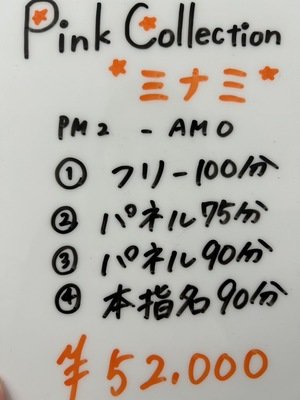 Pink Collection
*ミナミ*
PM2 - AM0
① フリー100分
② パネル75分
③ パネル90分
④ 本指名90分
¥52.000